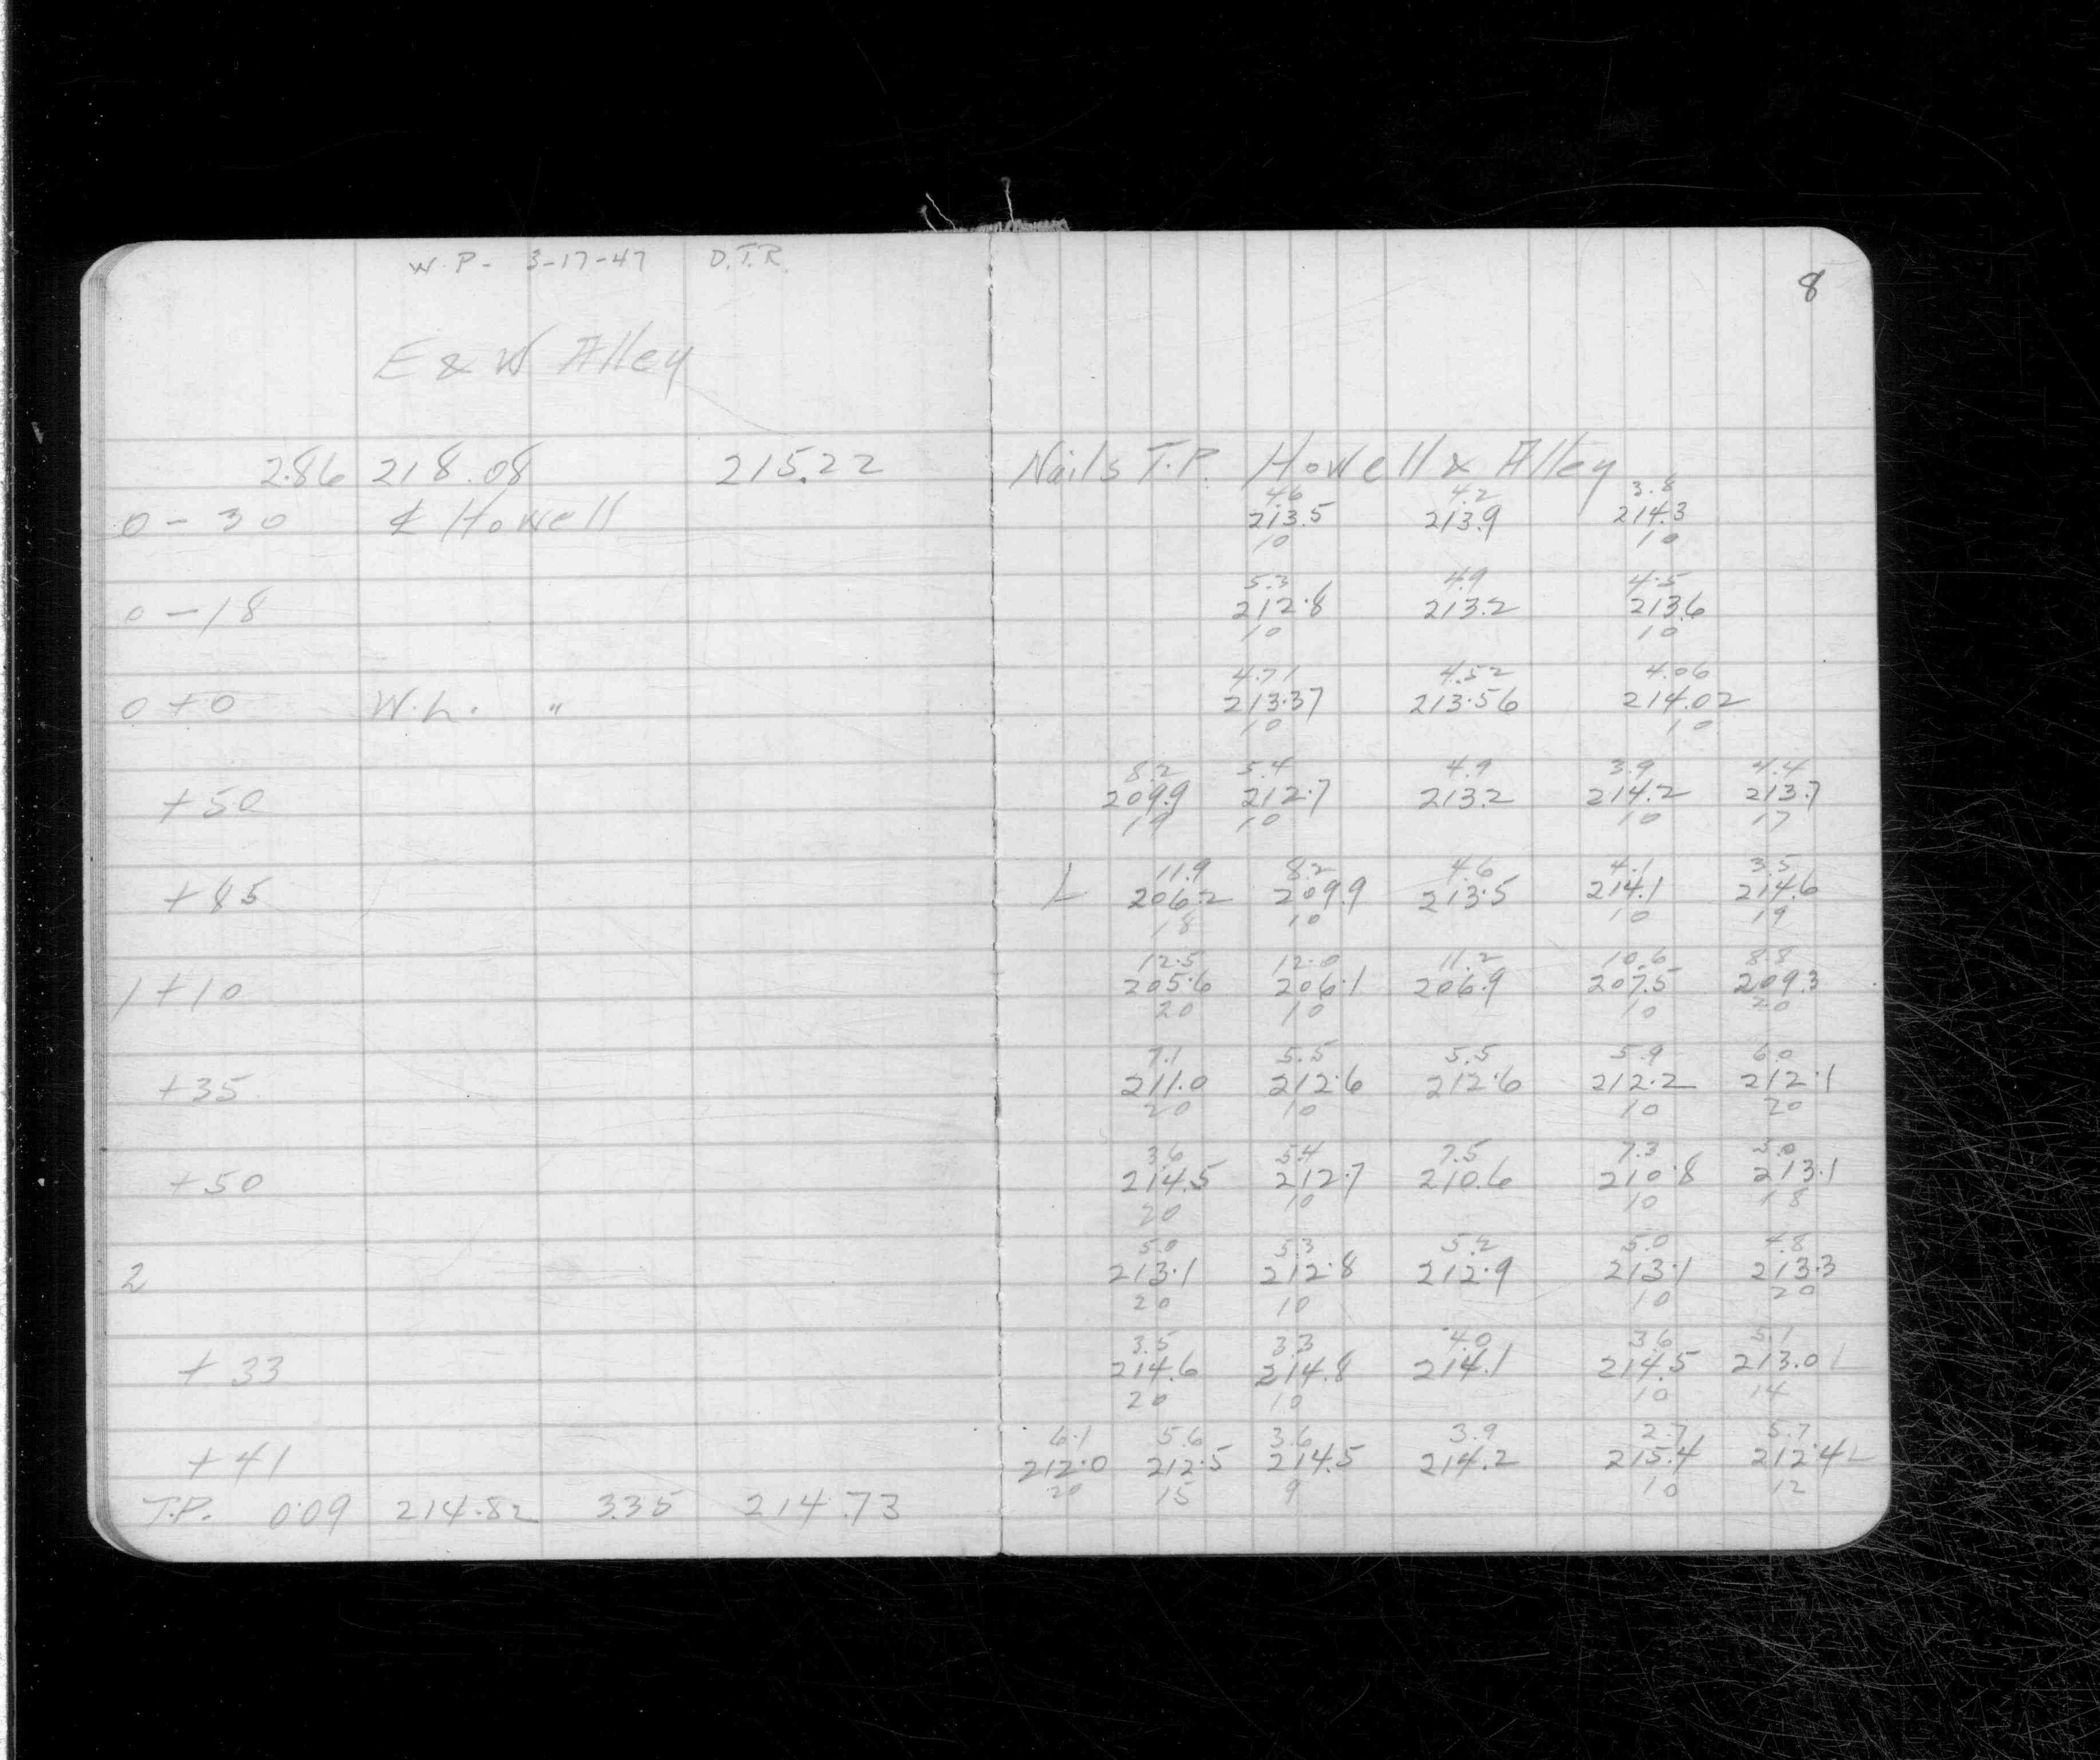 W.P- 3-17-47 D.T.R.
8
E & W Alley
2.86 218.08 215.22 Nails T.P. Howell & Alley
4.6 4.2 3.8
0-30 ⅊ Howell 213.5 213.9 214.3
10 10
5.3 4.9 4.5
0-18 212.8 213.2 213.6
10 10
4.71 4.52 4.06
0+0 W.L. " 213.37 213.56 214.02
10 10
8.2 5.4 4.9 3.9 4.4
+50 209.9 212.7 213.2 214.2 213.7
19 10 10 17
11.9 8.2 4.6 4.1 3.5
+85 L 206.2 209.9 213.5 214.1 214.6
18 10 10 19
12.5 12.0 11.2 10.6 8.8
1+10 205.6 206.1 206.9 207.5 209.3
20 10 10 20
7.1 5.5 5.5 5.9 6.0
+35 211.0 212.6 212.6 212.2 212.1
20 10 10 20
3.6 5.4 7.5 7.3 5.0
+50 214.5 212.7 210.6 210.8 213.1
20 10 10 18
5.0 5.3 5.2 5.0 4.8
2 213.1 212.8 212.9 213.1 213.3
20 10 10 20
3.5 3.3 4.0 3.6 5.1
+33 214.6 214.8 214.1 214.5 213.0 L
20 10 10 14
6.1 5.6 3.6 3.9 2.7 5.7
+41 212.0 212.5 214.5 214.2 215.4 212.4 L
20 15 9 10 12
T.P. 0.09 214.82 3.35 214.73